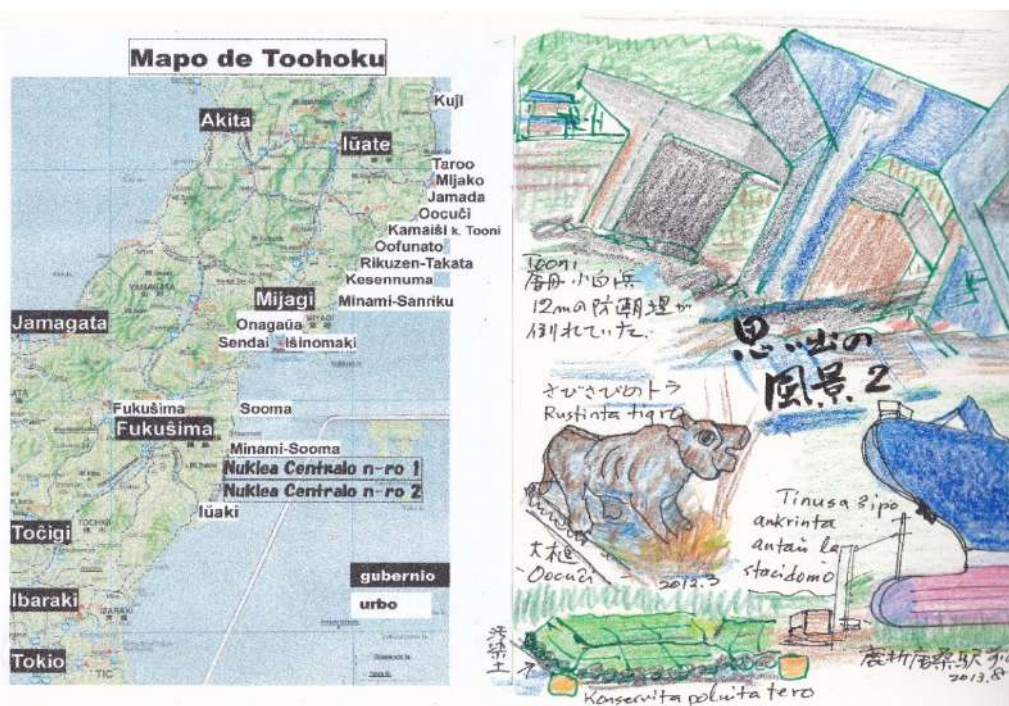 Mapo de Toohoku
Kuji
Akita
Iŭate
Taroo
Mijako
Jamada
Oocuĉi
Kamaiŝi k. Tooni
Oofunato
Rikuzen-Takata
Kesennuma
Mijagi
Minami-Sanriku
Jamagata
Onagaŭa
Sendai Iŝinomaki
Fukuŝima
Sooma
Fukuŝima
Minami-Sooma
Nuklea Centralo n-ro 1
Nuklea Centralo n-ro 2
Iŭaki
Toĉigi
gubernio
Ibaraki
urbo
Tokio
YAMAGATA
MIYAGI
TOCHIGI
IBARAKI
Tooni
唐丹小白浜
12mの防潮堤が
倒れていた.
思い出の
風景2
さびさびのトラ
Rustinta tigro
大槌
Oocuĉi
2012.3
Tinusa ŝipo
ankrinta
antaŭ la
stacidomo
鹿折唐桑駅前
2013.8
汚染土
Konservita poluita tero